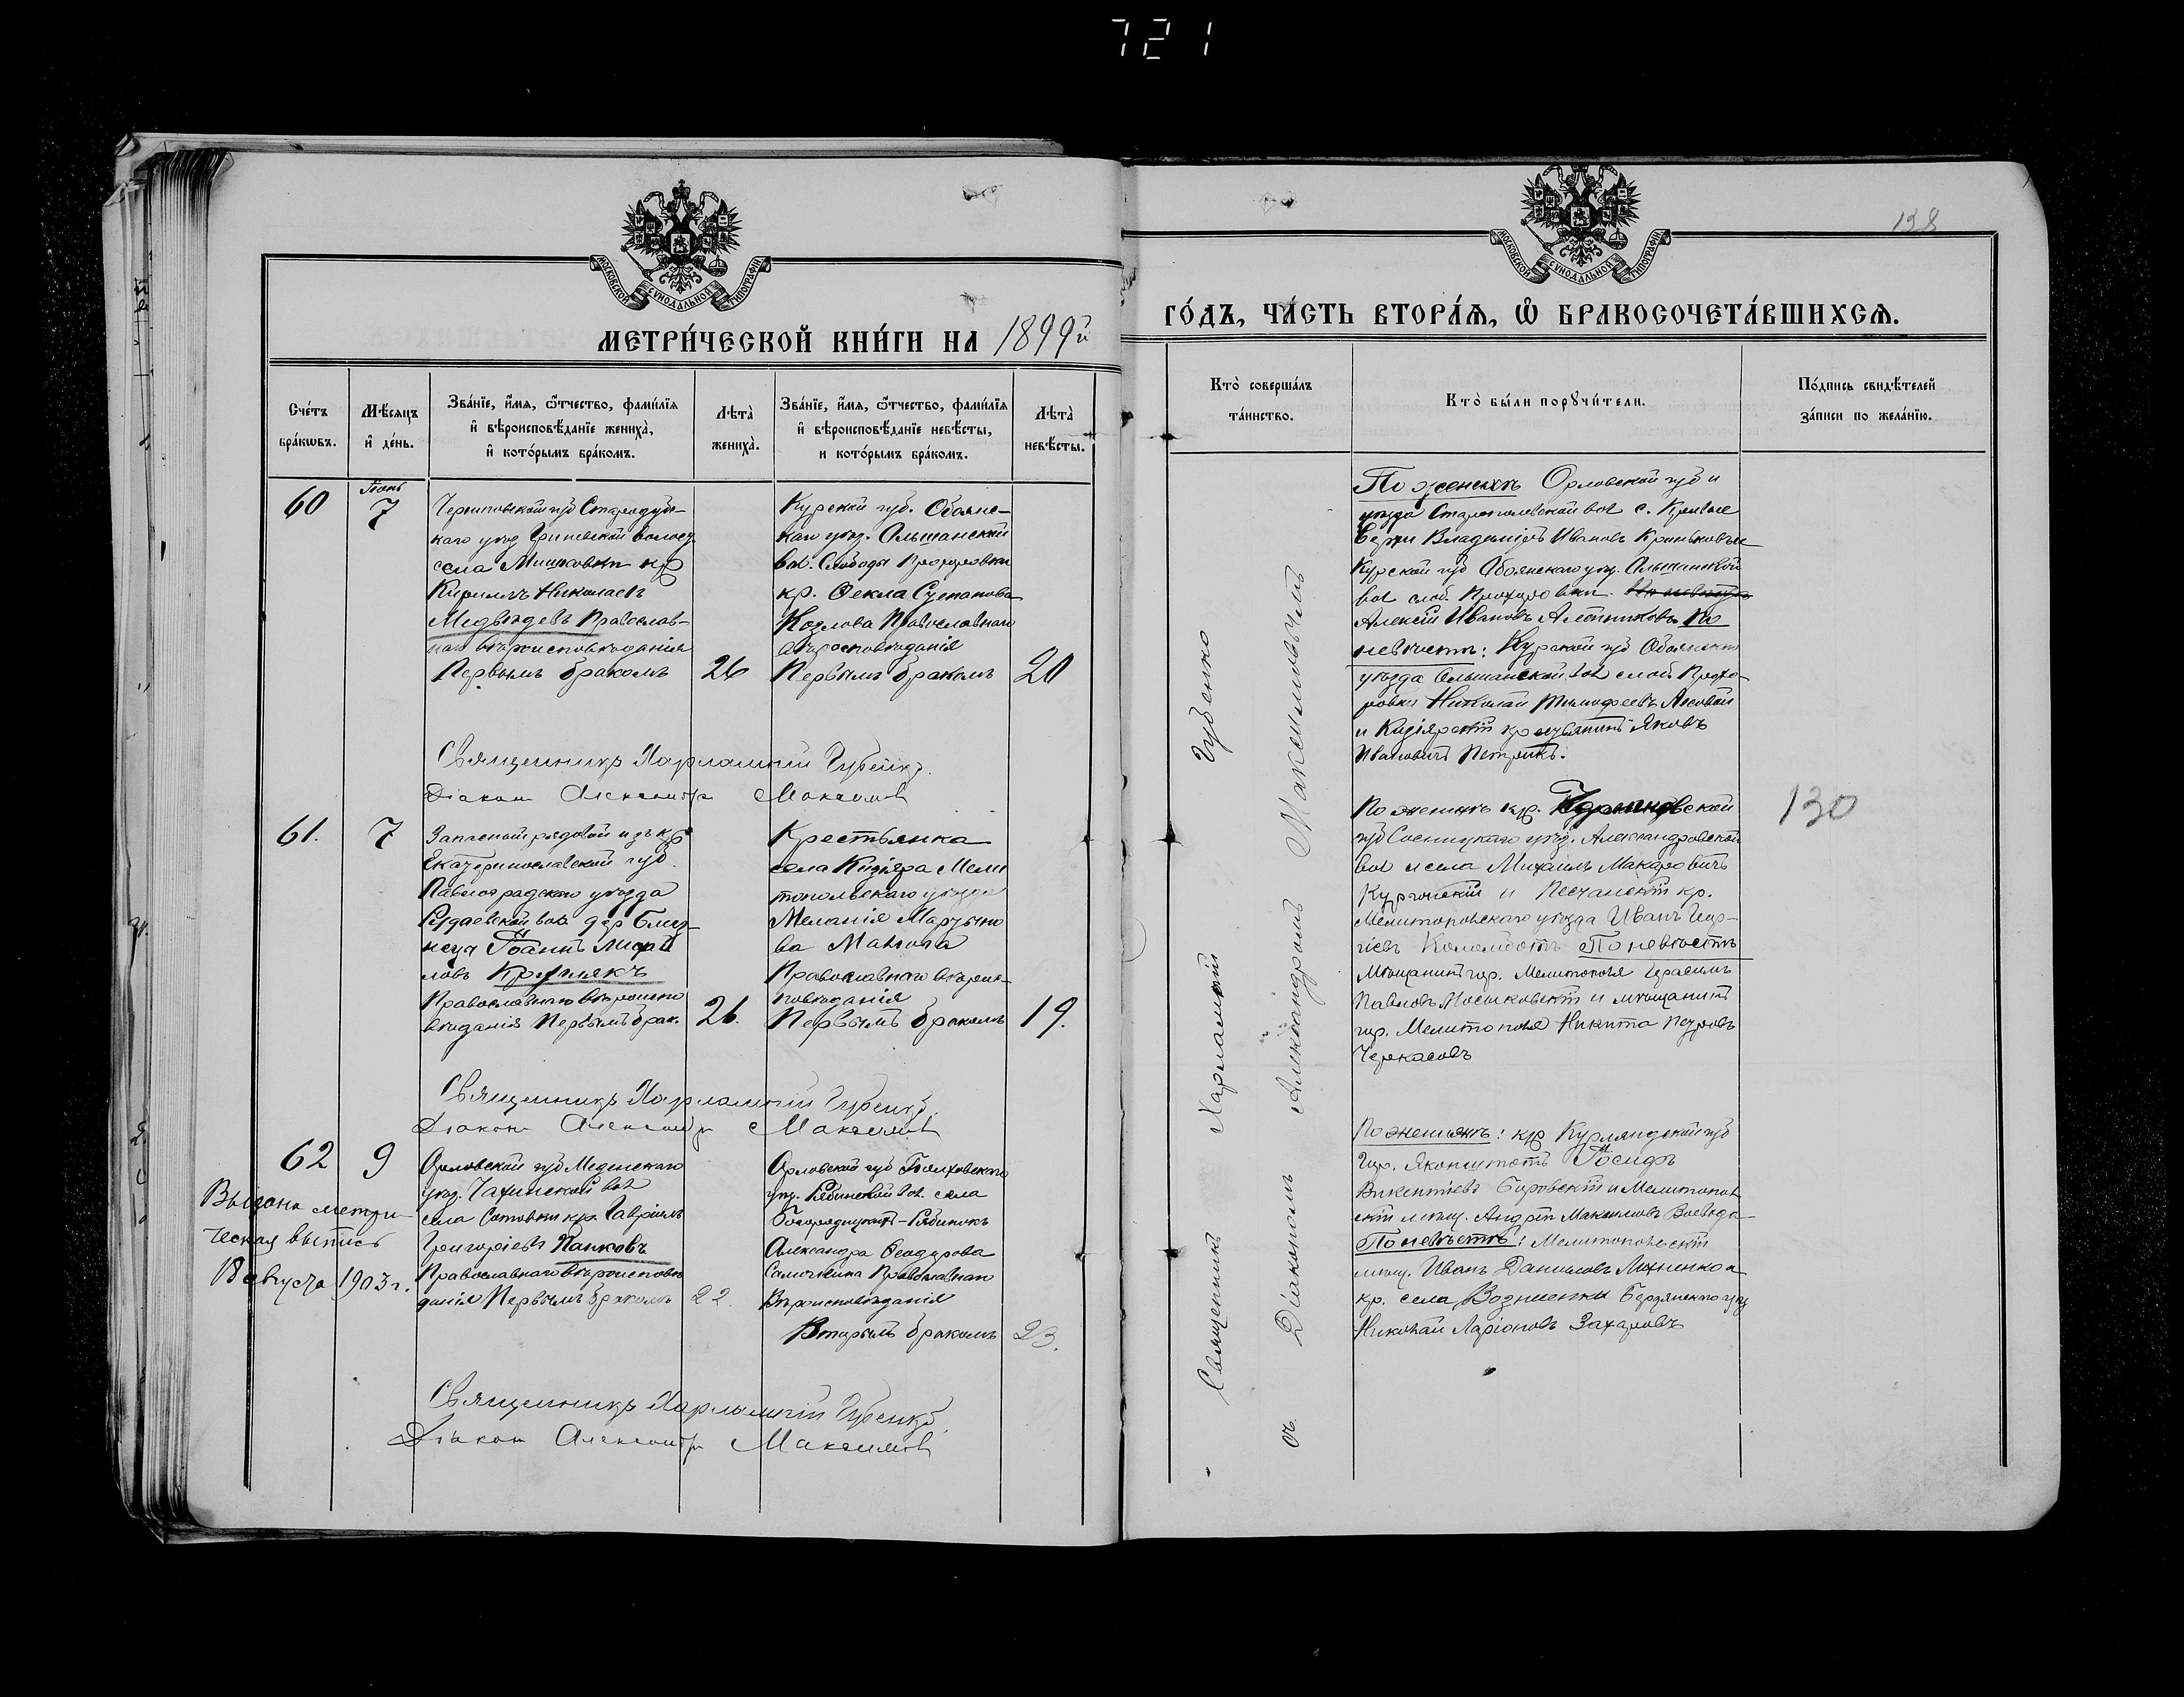 721
138
МОСКОВСКОЙ СѴНОДАЛЬНОЙ ТИПОГРАФІИ
МЕТРИ́ЧЕСКОЙ КНИ́ГИ НА 1899й
Сче́тъ бра́кѡвъ.
Мѣ́сяцъ и҆ де́нь.
Зва́нїе, и҆́мя, ѻ҆́тчество, фами́лїя
и҆ вѣроисповѣ́данїе жениха̀,
и҆ кото́рымъ бра́комъ.
Лѣта̀ жениха̀.
Зва́нїе, и҆́мя, ѻ҆́тчество, фами́лїя
и҆ вѣроисповѣ́данїе невѣ́сты,
и кото́рымъ бра́комъ.
Лѣта̀ невѣ́сты.
60
Іюнь
7
Черниговской губ Стародуб-
каго уѣзд Гриневской волос.
села Мишковки кр
Кириллъ Николаевъ
Медвѣдевъ Православ-
наго вѣроисповѣданія
Первымъ бракомъ
26
Курской губ. Обоянс-
каго уѣзд. Ольшанской
вол. Слободы Прохоровки
кр. Ѳекла
Козлова Православнаго
вѣроисповѣданія
Первымъ бракомъ
20
Священникъ Харлампій Губенко.
Діаконъ Александръ Максимовичъ
61.
7
Запасный рядовой изъ кр
Екатеринославской губ.
Павлоградскаго уѣзда
вол. дер Близ-
неца Іоаннъ
ловъ Крупякъ
Православнаго вѣроиспо
вѣданія Первымъ брак.
26.
Крестьянка
села Кизіяра Мели
топольскаго уѣзда
Меланія Мартыно
ва
Православнаго вѣроис-
повѣданія
Первымъ бракомъ
19.
Священникъ Харлампій Губенко.
Діаконъ Александръ Максимовичъ
62
9
Выдана метри-
ческая выпись
18 августа 1903 г.
Орловской губ
уѣзд. вол
села кр. Гавріилъ
Григоріевъ Панковъ
Православнаго вѣроисповѣ
данія Первымъ бракомъ
22.
Орловской губ Болховскаго
уѣз. вол. села
Богородицкаго-Рябинокъ
Александра Ѳеодорова
Православнаго
Вѣроисповѣданія
Вторымъ бракомъ
23.
Священникъ Харлампій Губенко
Діаконъ Александръ Максимовичъ
ГО́ДЪ, ЧА́СТЬ ВТОРА́Я, Ѽ БРАКОСОЧЕТА́ВШИХСЯ.
МОСКОВСКОЙ СѴНОДАЛЬНОЙ ТИПОГРАФІИ
Кто̀ соверша́лъ
та́инство.
Кто̀ бы́ли порꙋчи́тели.
По́дпись свидѣ́телей
за́писи по жела́нїю.
Священникъ Харлампій Губенко
съ Діакономъ Александромъ Максимовичемъ
По женихѣ Орловской губ и
уѣзда вол с. Кривые
Верхи Владиміръ Ивановъ
Курской губ Обоянскаго уѣз. Ольшанской
вол слоб. Прохоровки. По невѣстѣ
Алексій Ивановъ По
невѣстѣ: Курской губ Обоянскаго
уѣзда Ольшанской вол слоб. Прохо-
ровки Николай Тимофеевъ Лисовой
и Кизіярскій крестьянинъ Яковъ
Ивановичъ
По женихѣ кр. Черниговской
губ Сосницкаго уѣзд. Александровской
вол и села Михаилъ Макаровичъ
и Песчанскій кр.
Мелитопольскаго уѣзда Иванъ Геор-
гіевъ По невѣстѣ
Мѣщанинъ гор. Мелитополя Герасимъ
Павловъ Мошковскій и мѣщанинъ
гор. Мелитополя Никита Петровъ
Черкасовъ
130
По женихѣ: кр Курляндской губ
гор. Якобштатъ Іосифъ
Викентіевъ Боровскій и Мелитополь
скій мѣщ. Андрей Максимовъ Воевода-
По невѣстѣ: Мелитопольскій
мѣщ. Иванъ Даниловъ Михненко и
кр. села Вознесенки Бердянскаго уѣз
Николай Ларіоновъ Захаровъ